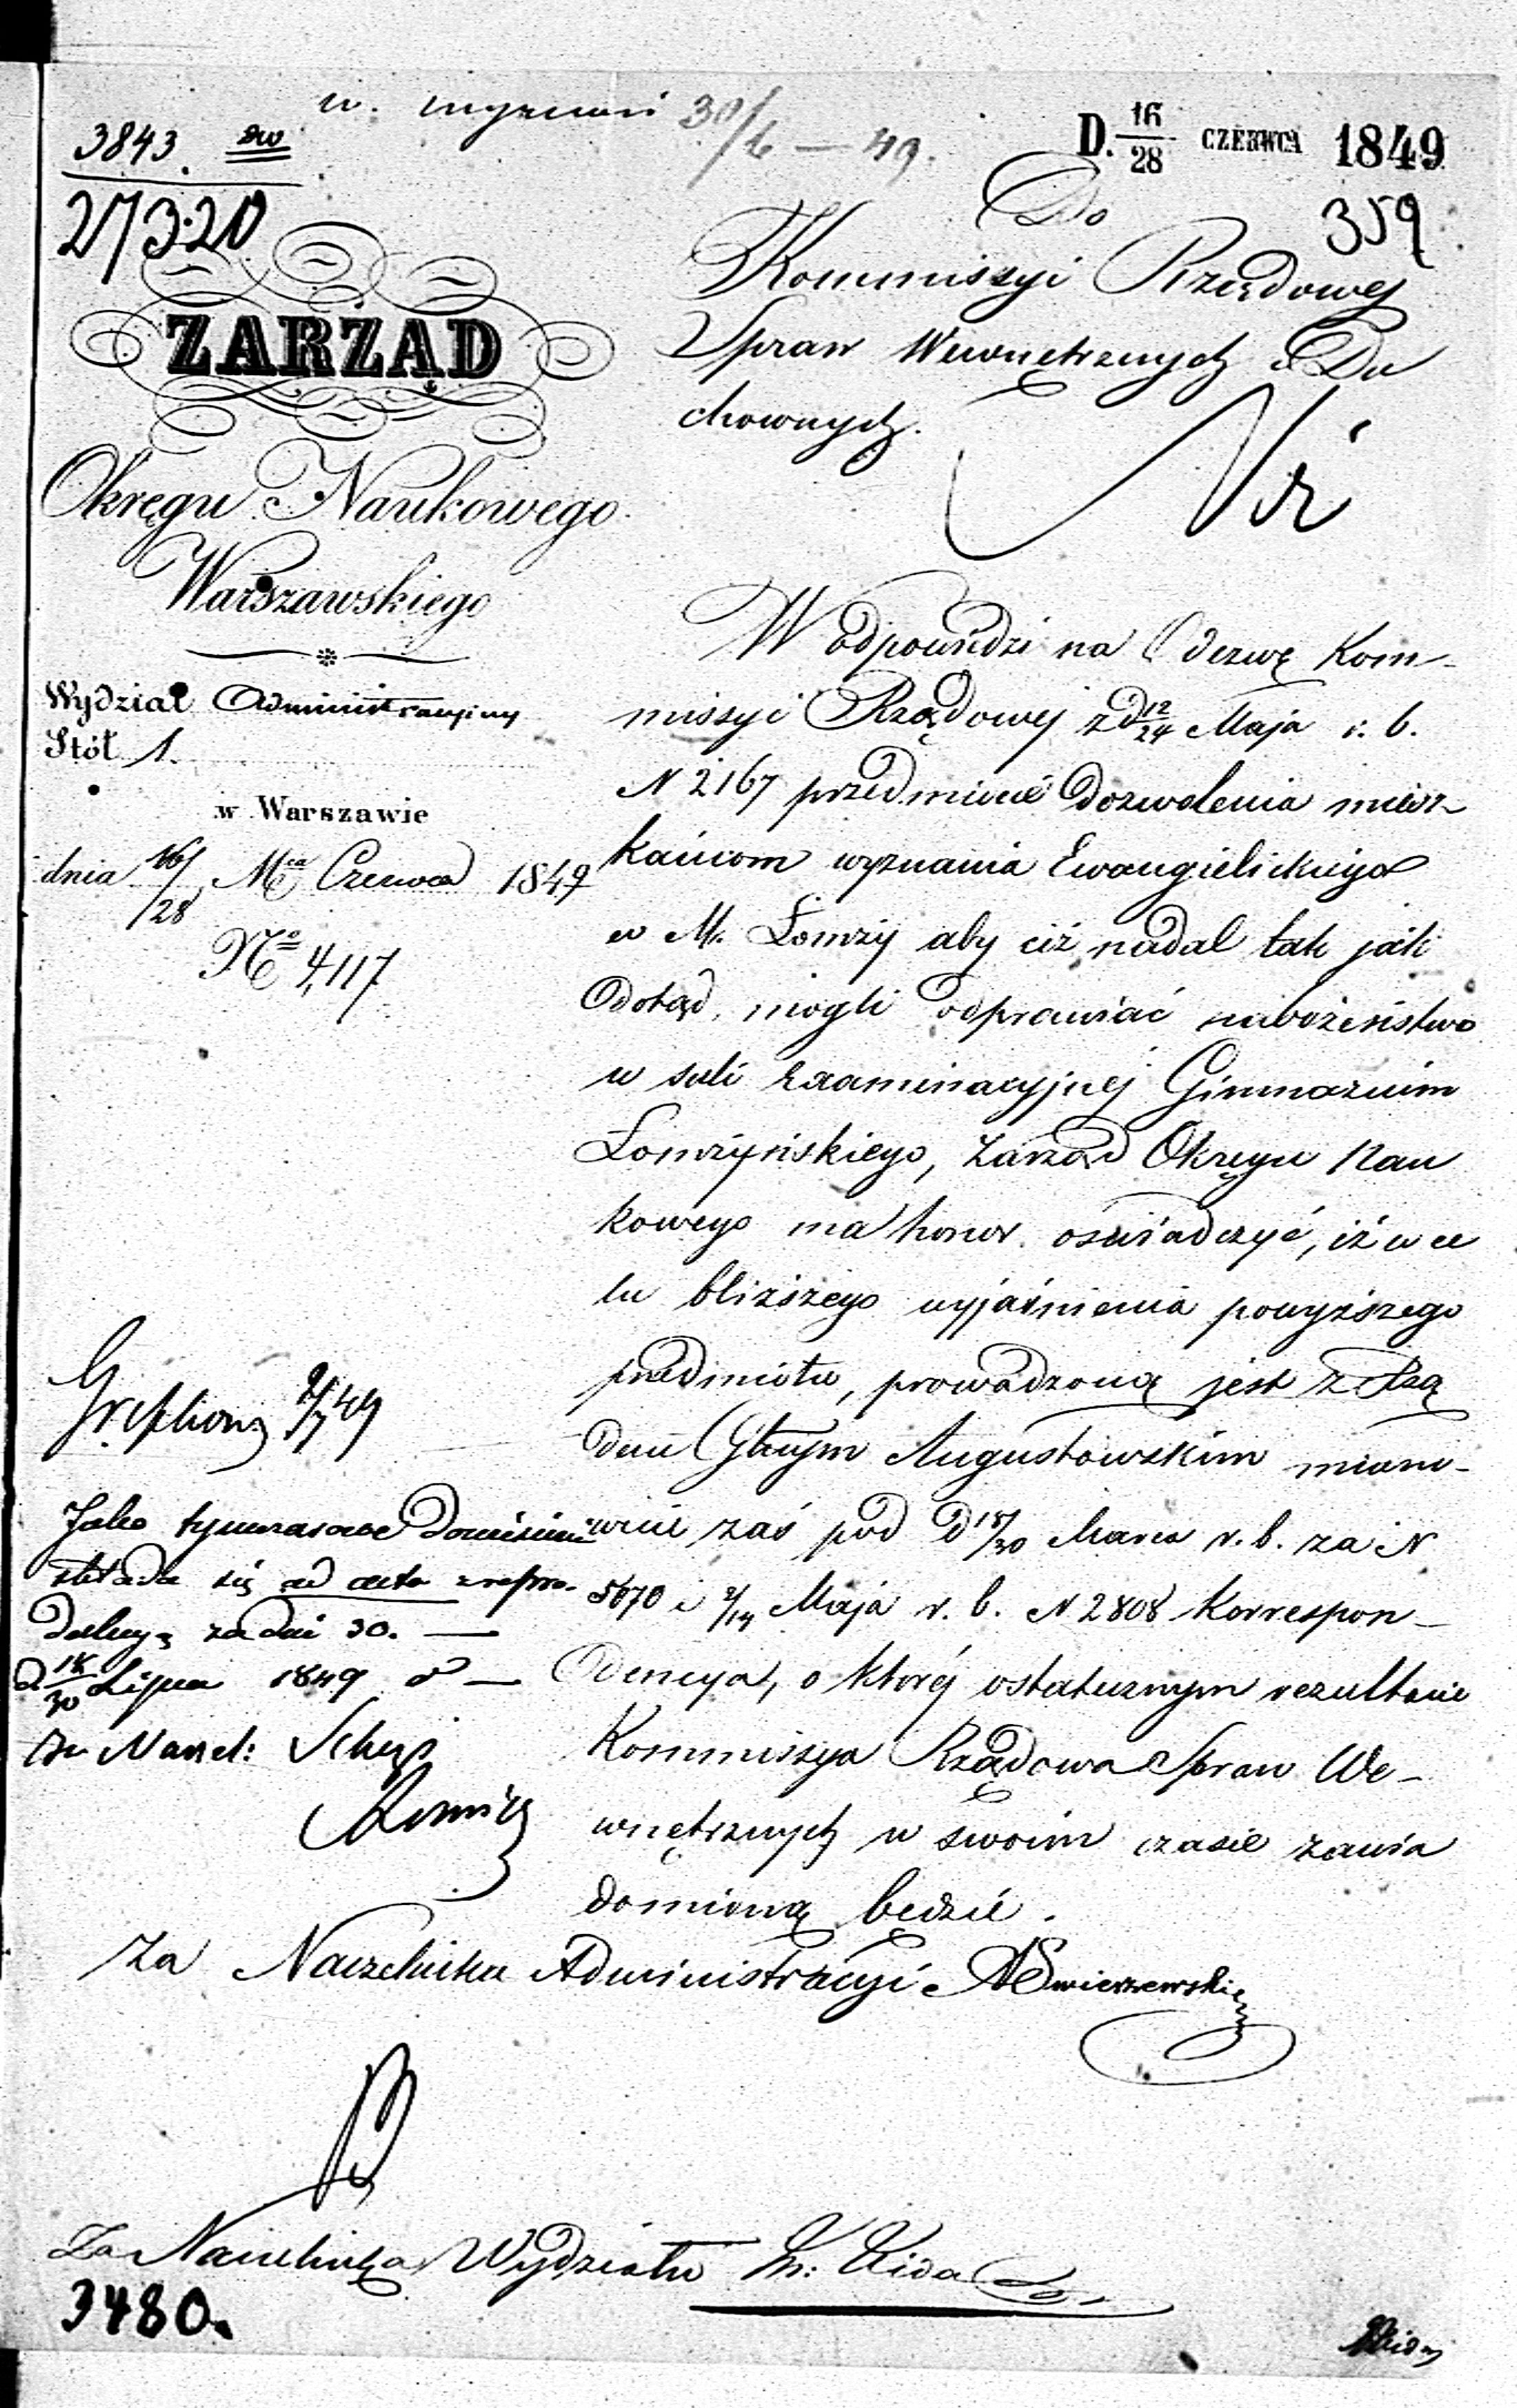 3843.
27320
w.
30/6 – 49.
D. 16/28 CZERWCA 1849
359
ZARZĄD
Okręgu Naukowego
Warszawskiego
Wydział Administracyiny
Stół 1.
w Warszawie
dnia 16/28 Mca Czerwca 1849
No 4,117
Do
Kommissyi Rządowej
Spraw Wewnętrznych i Du
chownych.
W odpowiedzi na Odezwę Kom-
missyi Rządowej z d 12/24 Maja r. b.
N 2167 w przedmiocie dozwolenia miesz-
kańcom wyznania Ewangielickiego
w M. Łomży aby ciż nadal tak jak
dotąd, mogli odprawiać nabożeństwo
w sali examinacyjnej Gimnazium
Łomżyńskiego, Zarząd Okręgu Nau
kowego ma honor oświadczyć, iż w ce
lu bliższego wyjaśnienia powyższego
przedmiotu, prowadzoną jest z Rzą
dem Gbnym Augustowskim miano-
wicie zaś pod d 18/30 Marca r. b. za N
5670 i 2/14 Maja r. b. N 2808 Korrespon-
dencya, o której ostatecznym rezultacie
Kommissya Rządowa Spraw We-
wnętrznych w swoim czasie zawia
domioną będzie.
Za Naczelnika Administracyi ASwierzewski
2/7 49
Jako tymczasowe doniesienie
składa się ad acta z repro-
dukcyą za dni 30. —
d 18/30 Lipca 1849 r —
Za Naczel: Sekcyi
Za Naczelnika Wydziału
3480.